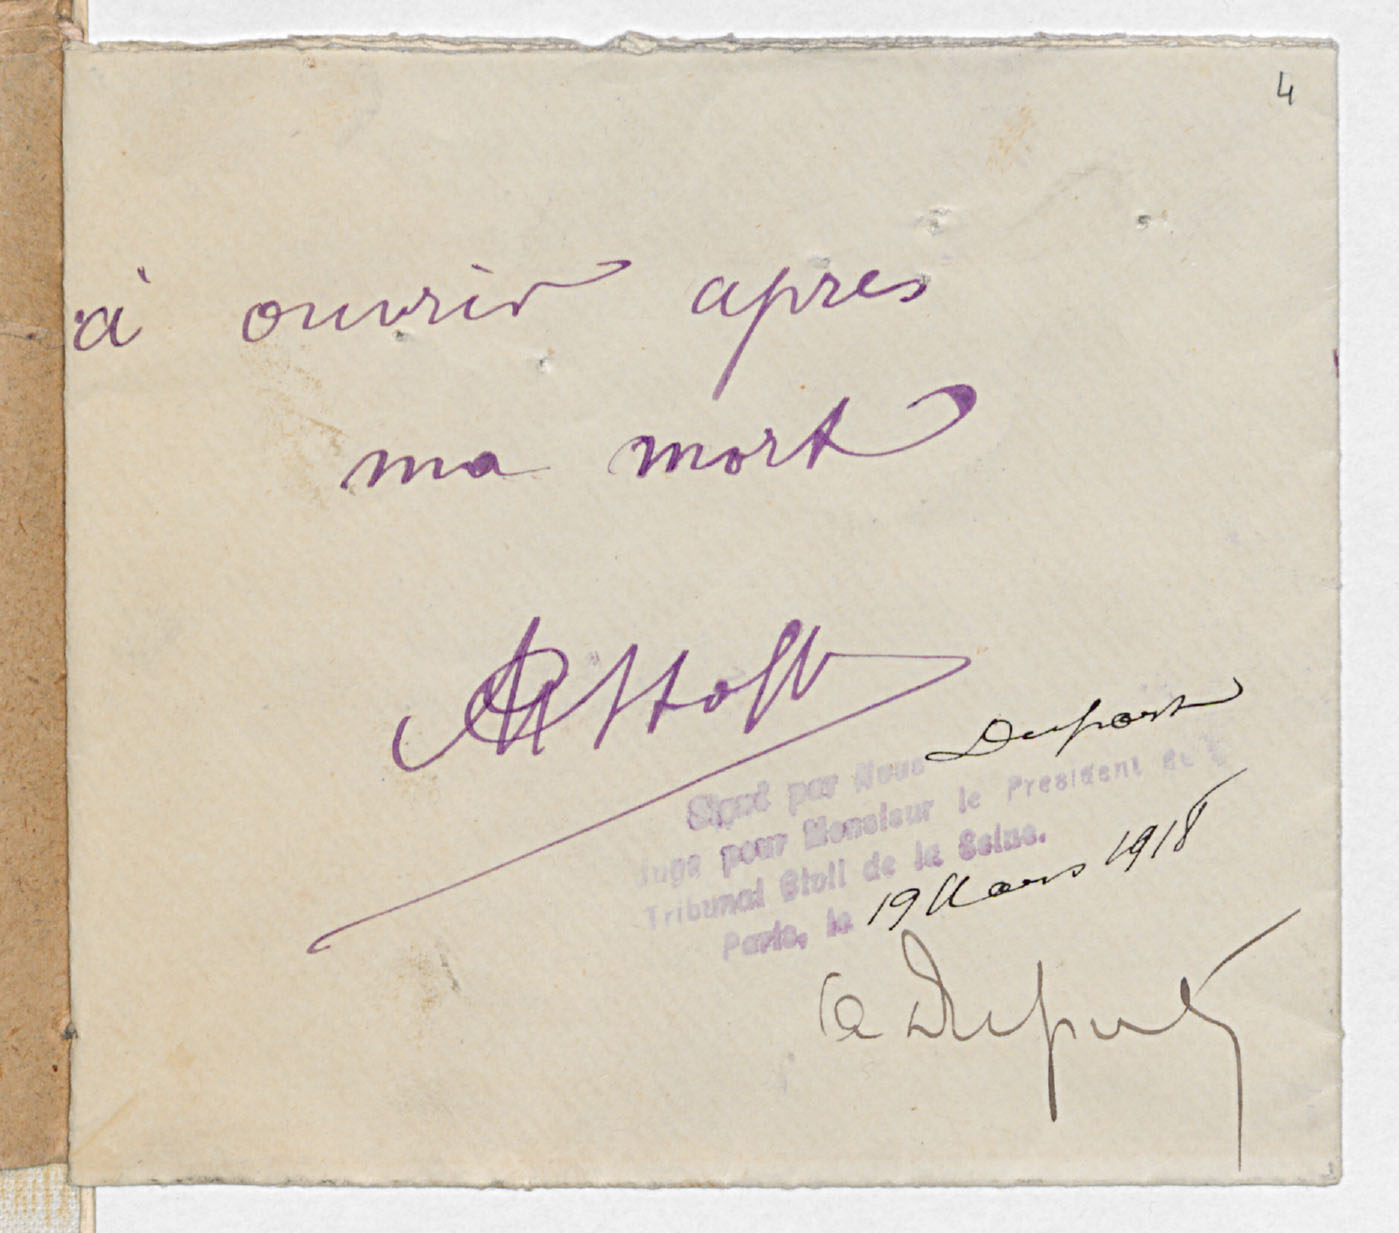 4
à ouvrir apres
ma mort
Signé par Nous Duport
Juge pour Monsieur le President du
Tribunal Civil de la Seine.
Paris, le 19 Mars 1918